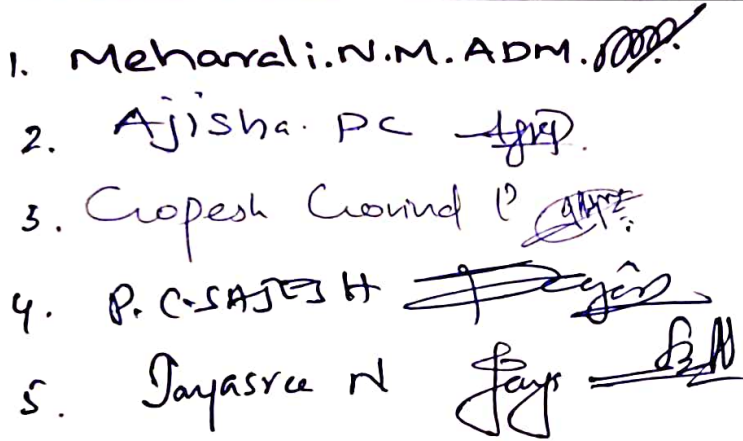 1. Meharali.N.M. ADM.
2. Ajisha. PC
3. Gopesh Govind P
4. P. C. SAJESH
5. Jayasree N